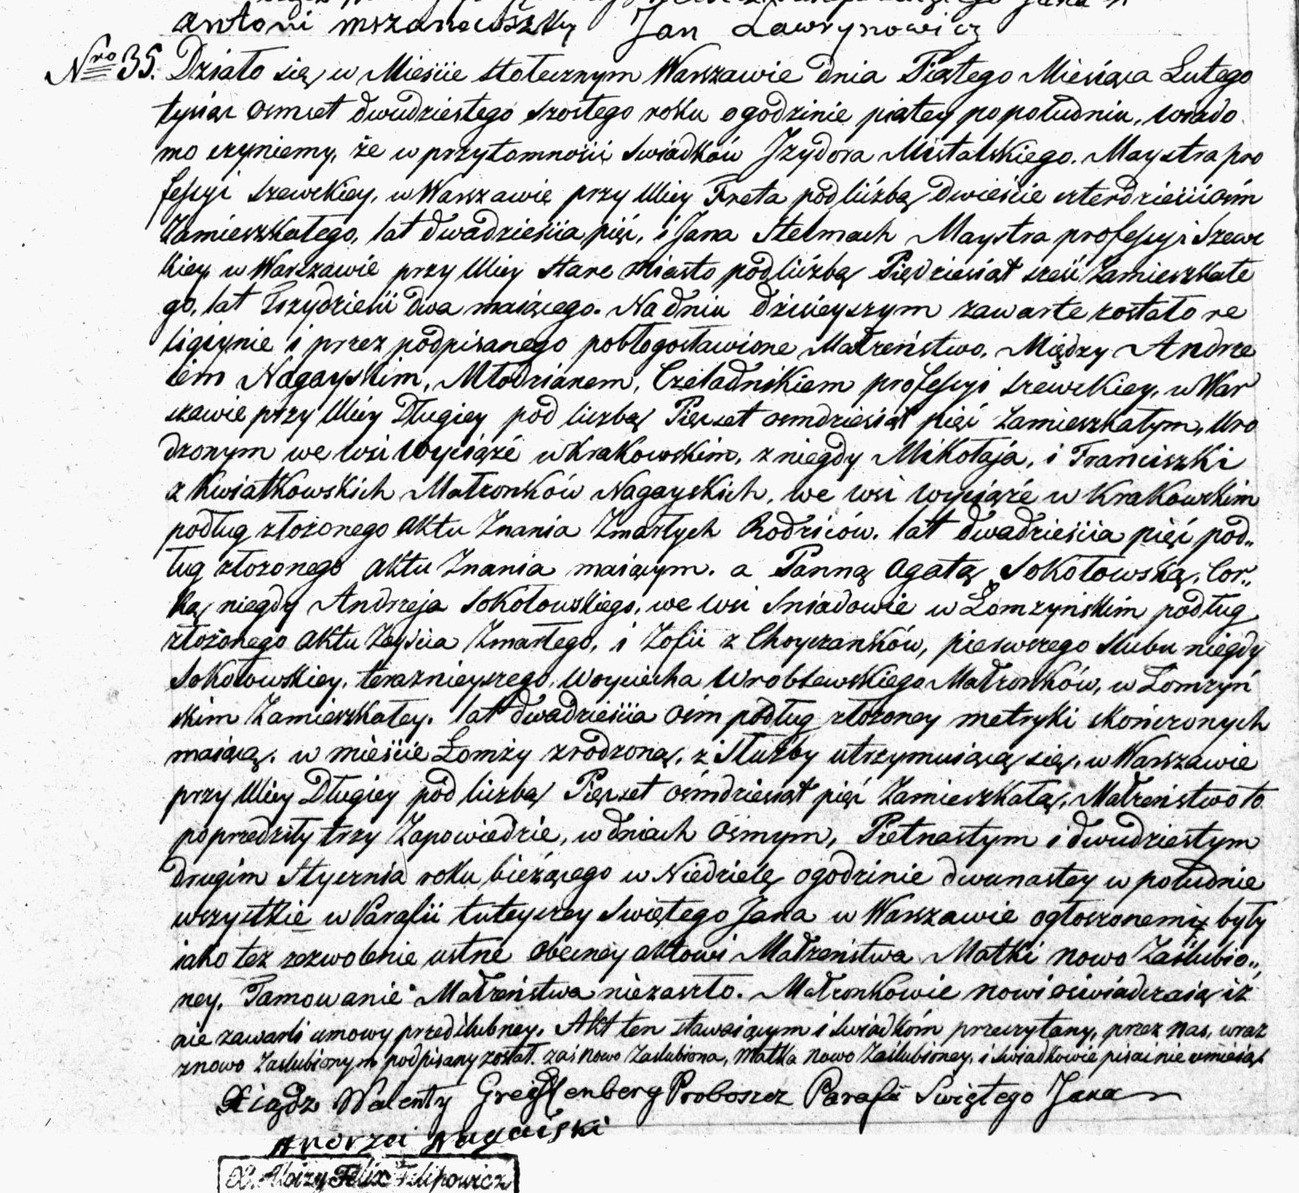 Antoni Mszanowszky Jan Lawrynowicz
Nro 35. Działo się w Mieście stołecznym Warszawie dnia Piątego Miesiąca Lutego
tysiąc osmset dwudziestego szostego roku o godzinie piątey popołudniu, wiado
mo czyniemy, że w przytomności swiadków Jzydora Mistalskiego. Maystra pro
fessyi szewckiey, w Warszawie przy Ulicy Freta pod liczbą dwieście czterdzieści ośm
Zamieszkałego, lat dwadzieścia pięć, i Jana Stelmach Maystra professyi Szewc
kiey w Warszawie przy Ulicy Stare miasto pod liczbą Pięćdziesiąt sześć Zamieszkałe
go, lat Trzydzieści dwa maiącego. Na dniu dzisieyszym zawarte zostało re
ligiynie i przez podpisanego pobłogosławione Małżeństwo, Między Andrze
iem Nagayskim, Młodzianem, Czeladnikiem professyi szewckiey, w War
szawie przy Ulicy Długiey pod liczbą Pięćset osmdziesiąt pięć Zamieszkałym, Uro
dzonym we wsi Wyciąże w Krakowskim, z niegdy Mikołaja, i Franciszki
z Kwiatkowskich Małżonków Nagayskich, we wsi Wyciąże w Krakowskim
podług złożonego Aktu Znania Zmarłych Rodziców. lat dwadzieścia pięć pod„
ług złozonego Aktu Znania maiącym. a Panną Agatą Sokołowską, Cor„
ką niegdy Andrzeja Sokołowskiego, we wsi Sniadowie w Łomzyńskim podług
złożonego Aktu Zeyścia Zmarłego, i Zofii z Choyczanków, pierwszego slubu niegdy
Sokołowskiey, teraznieyszego, Woyciecha Wroblewskiego Małżonków, w Łomzyń
skim Zamieszkałey. lat dwadzieścia ośm podług złożoney metryki skończonych
maiącą. w mieście Łomży zrodzoną, z Służby utrzymuiącą się, w Warszawie
przy Ulicy Długiey pod liczbą Pięcset ośmdziesiąt pięć Zamieszkałą, Małżeństwo to
poprzedziły trzy Zapowiedzie, w dniach Osmym, Piętnastym i dwudziestym
drugim Stycznia roku bieżącego w Niedzielę o godzinie dwunastey w południe
wszystkie w Parafii tuteyszey Swiętego Jana w Warszawie ogłoszonemi były
iako tez zezwolenie ustne obecney aktowi Małżeństwa Matki nowo Zaślubio„
ney, Tamowanie Małżeństwa niezaszło. Małżonkowie nowi oświadczaią iż
nie zawarli umowy przedślubney. Akt ten stawaiącym i swiadkóm przeczytany, przez nas, wraz
z nowo Zaslubionym podpisany został. zaś nowo Zaslubiona, Matka nowo Zaślubioney, i Swiadkowie pisać nie umieią.
Xiądz Walenty Greffenberg Proboszcz Parafii Swiętego Jana
Andrzei Nagaiski
X. Aloizy Felix Filipowicz